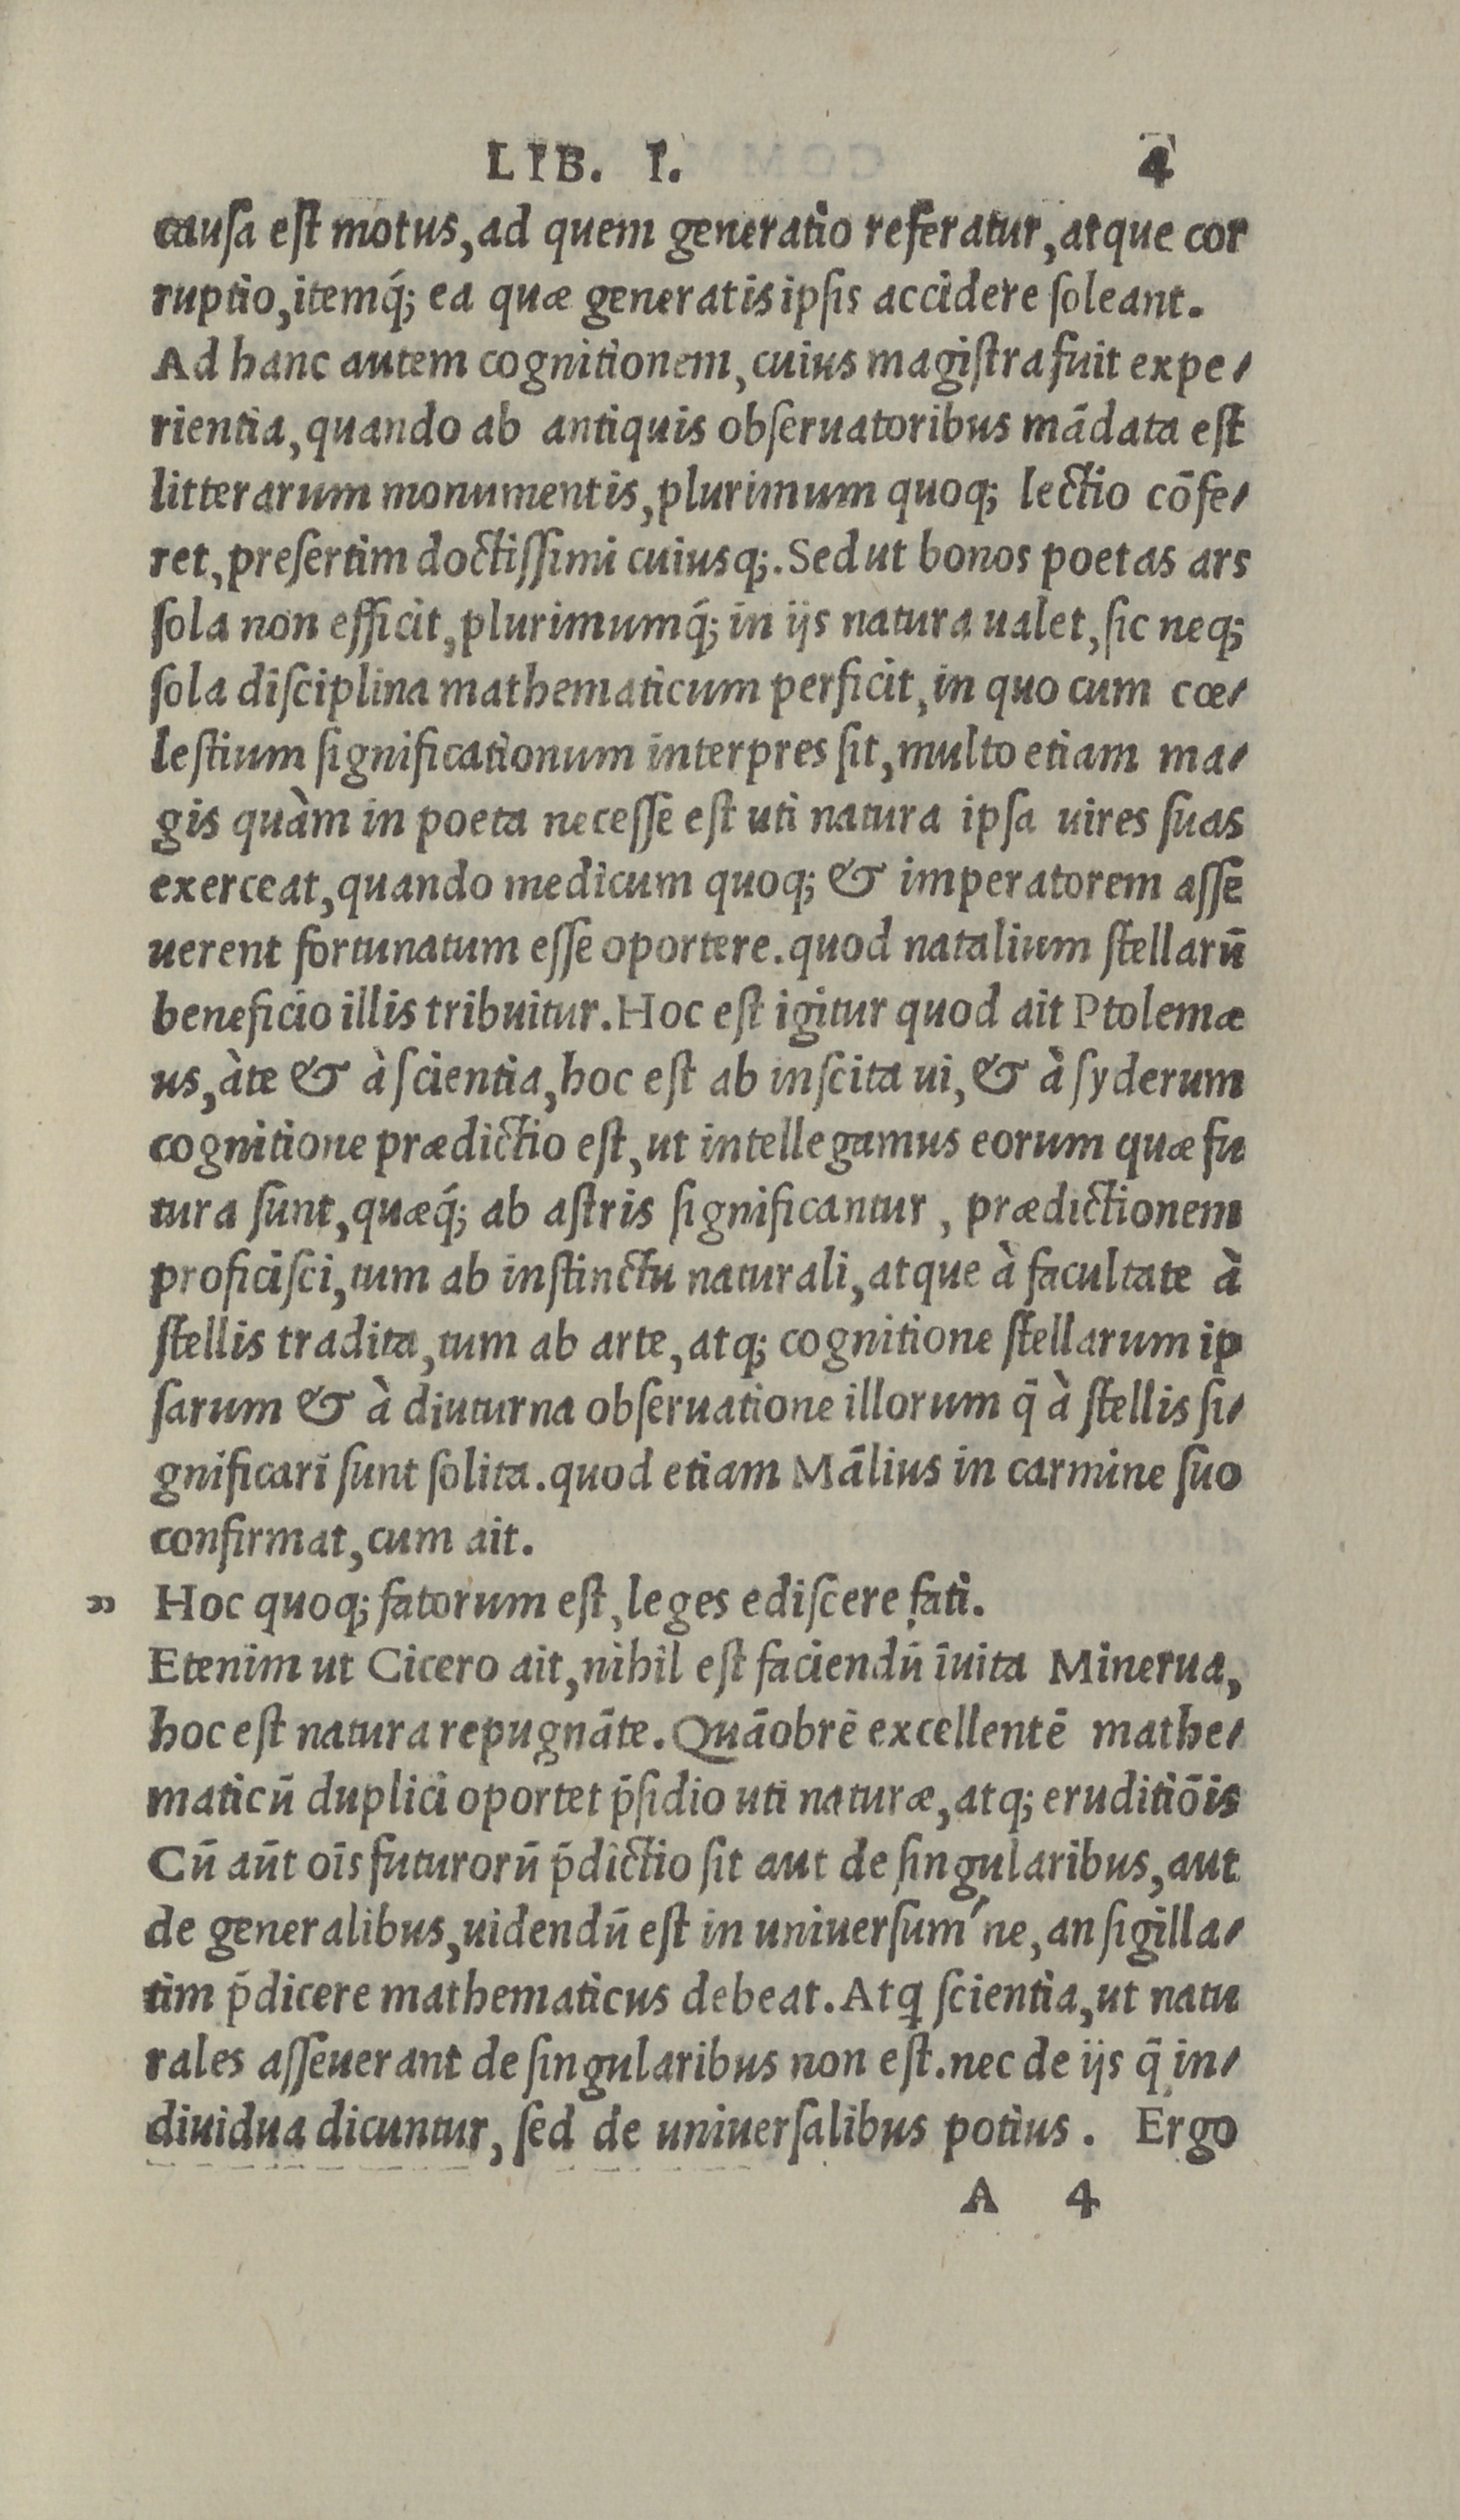 LIB. I. 4
cauſa eſt motus, ad quem generatio referatur, atque cor
ruptio, itemq́; ea quæ generatis ipſis accidere ſoleant.
Ad hanc autem cognitionem, cuius magiſtra fuit expe⸗
rientia, quando ab antiquis obſeruatoribus mādata eſt
litterarum monumentis, plurimum quoq; lectio cōfe⸗
ret, preſertim doctiſſimi cuiusq;. Sed ut bonos poetas ars
ſola non efficit, plurimumq́; in ijs natura ualet, ſic neq;
ſola diſciplina mathematicum perficit, in quo cum cœ⸗
leſtium ſignificationum interpres ſit, multo etiam ma⸗
gis quàm in poeta neceſſe eſt uti natura ipſa uires ſuas
exerceat, quando medicum quoq; & imperatorem aſſe
uerent fortunatum eſſe oportere. quod natalium ſtellarū
beneficio illis tribuitur. Hoc eſt igitur quod ait Ptolemæ
us, àte & à ſcientia, hoc eſt ab inſcita ui, & à ſyderum
cognitione prædictio eſt, ut intellegamus eorum quæ fu
tura ſunt, quæq́; ab aſtris ſignificantur, prædictionem
proficiſci, tum ab inſtinctu naturali, atque à facultate à
ſtellis tradita, tum ab arte, atq; cognitione ſtellarum ip
ſarum & à diuturna obſeruatione illorum q̄ à ſtellis ſi⸗
gnificari ſunt ſolita. quod etiam Mālius in carmine ſuo
confirmat, cum ait.
” Hoc quoq; fatorum eſt, leges ediſcere fati.
Etenim ut Cicero ait, nihil eſt faciendū īuita Minerua,
hoc eſt natura repugnāte. Quāobrē excellentē mathe⸗
maticū duplici oportet p̄ſidio uti naturæ, atq; eruditiōis
Cū aūt oīs futurorū p̄dictio ſit aut de ſingularibus, aut
de generalibus, uidendū eſt in uniuerſum'ne, an ſigilla⸗
tim p̄dicere mathematicus debeat. Atq ſcientia, ut natu
rales aſſeuerant de ſingularibus non eſt. nec de ijs q̄ in⸗
diuidua dicuntur, ſed de uniuerſalibus potius. Ergo
A 4